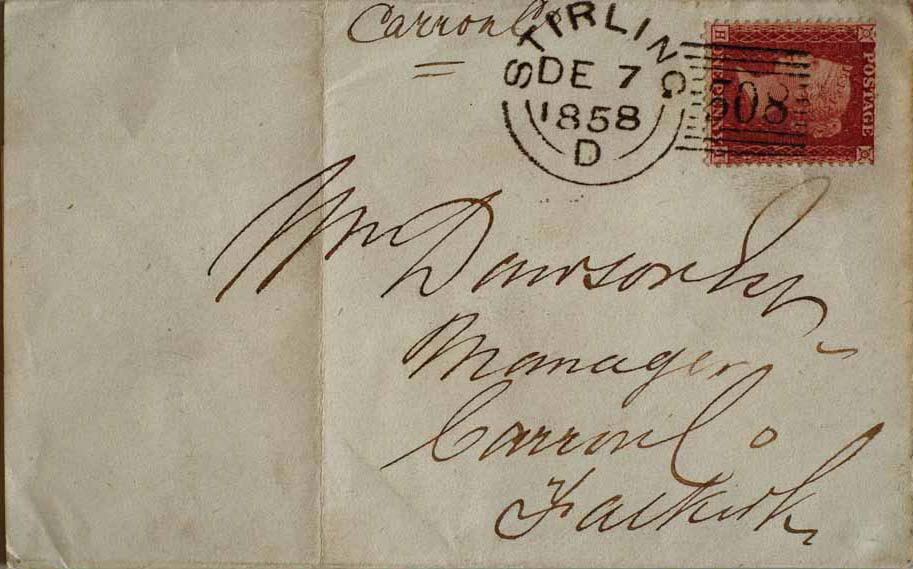 Carron Co
STIRLING
DE 7
1858
D
308
POSTAGE
ONE PENNY
H
Wm Dawson Esqr
Manager
Carron Co
Falkirk